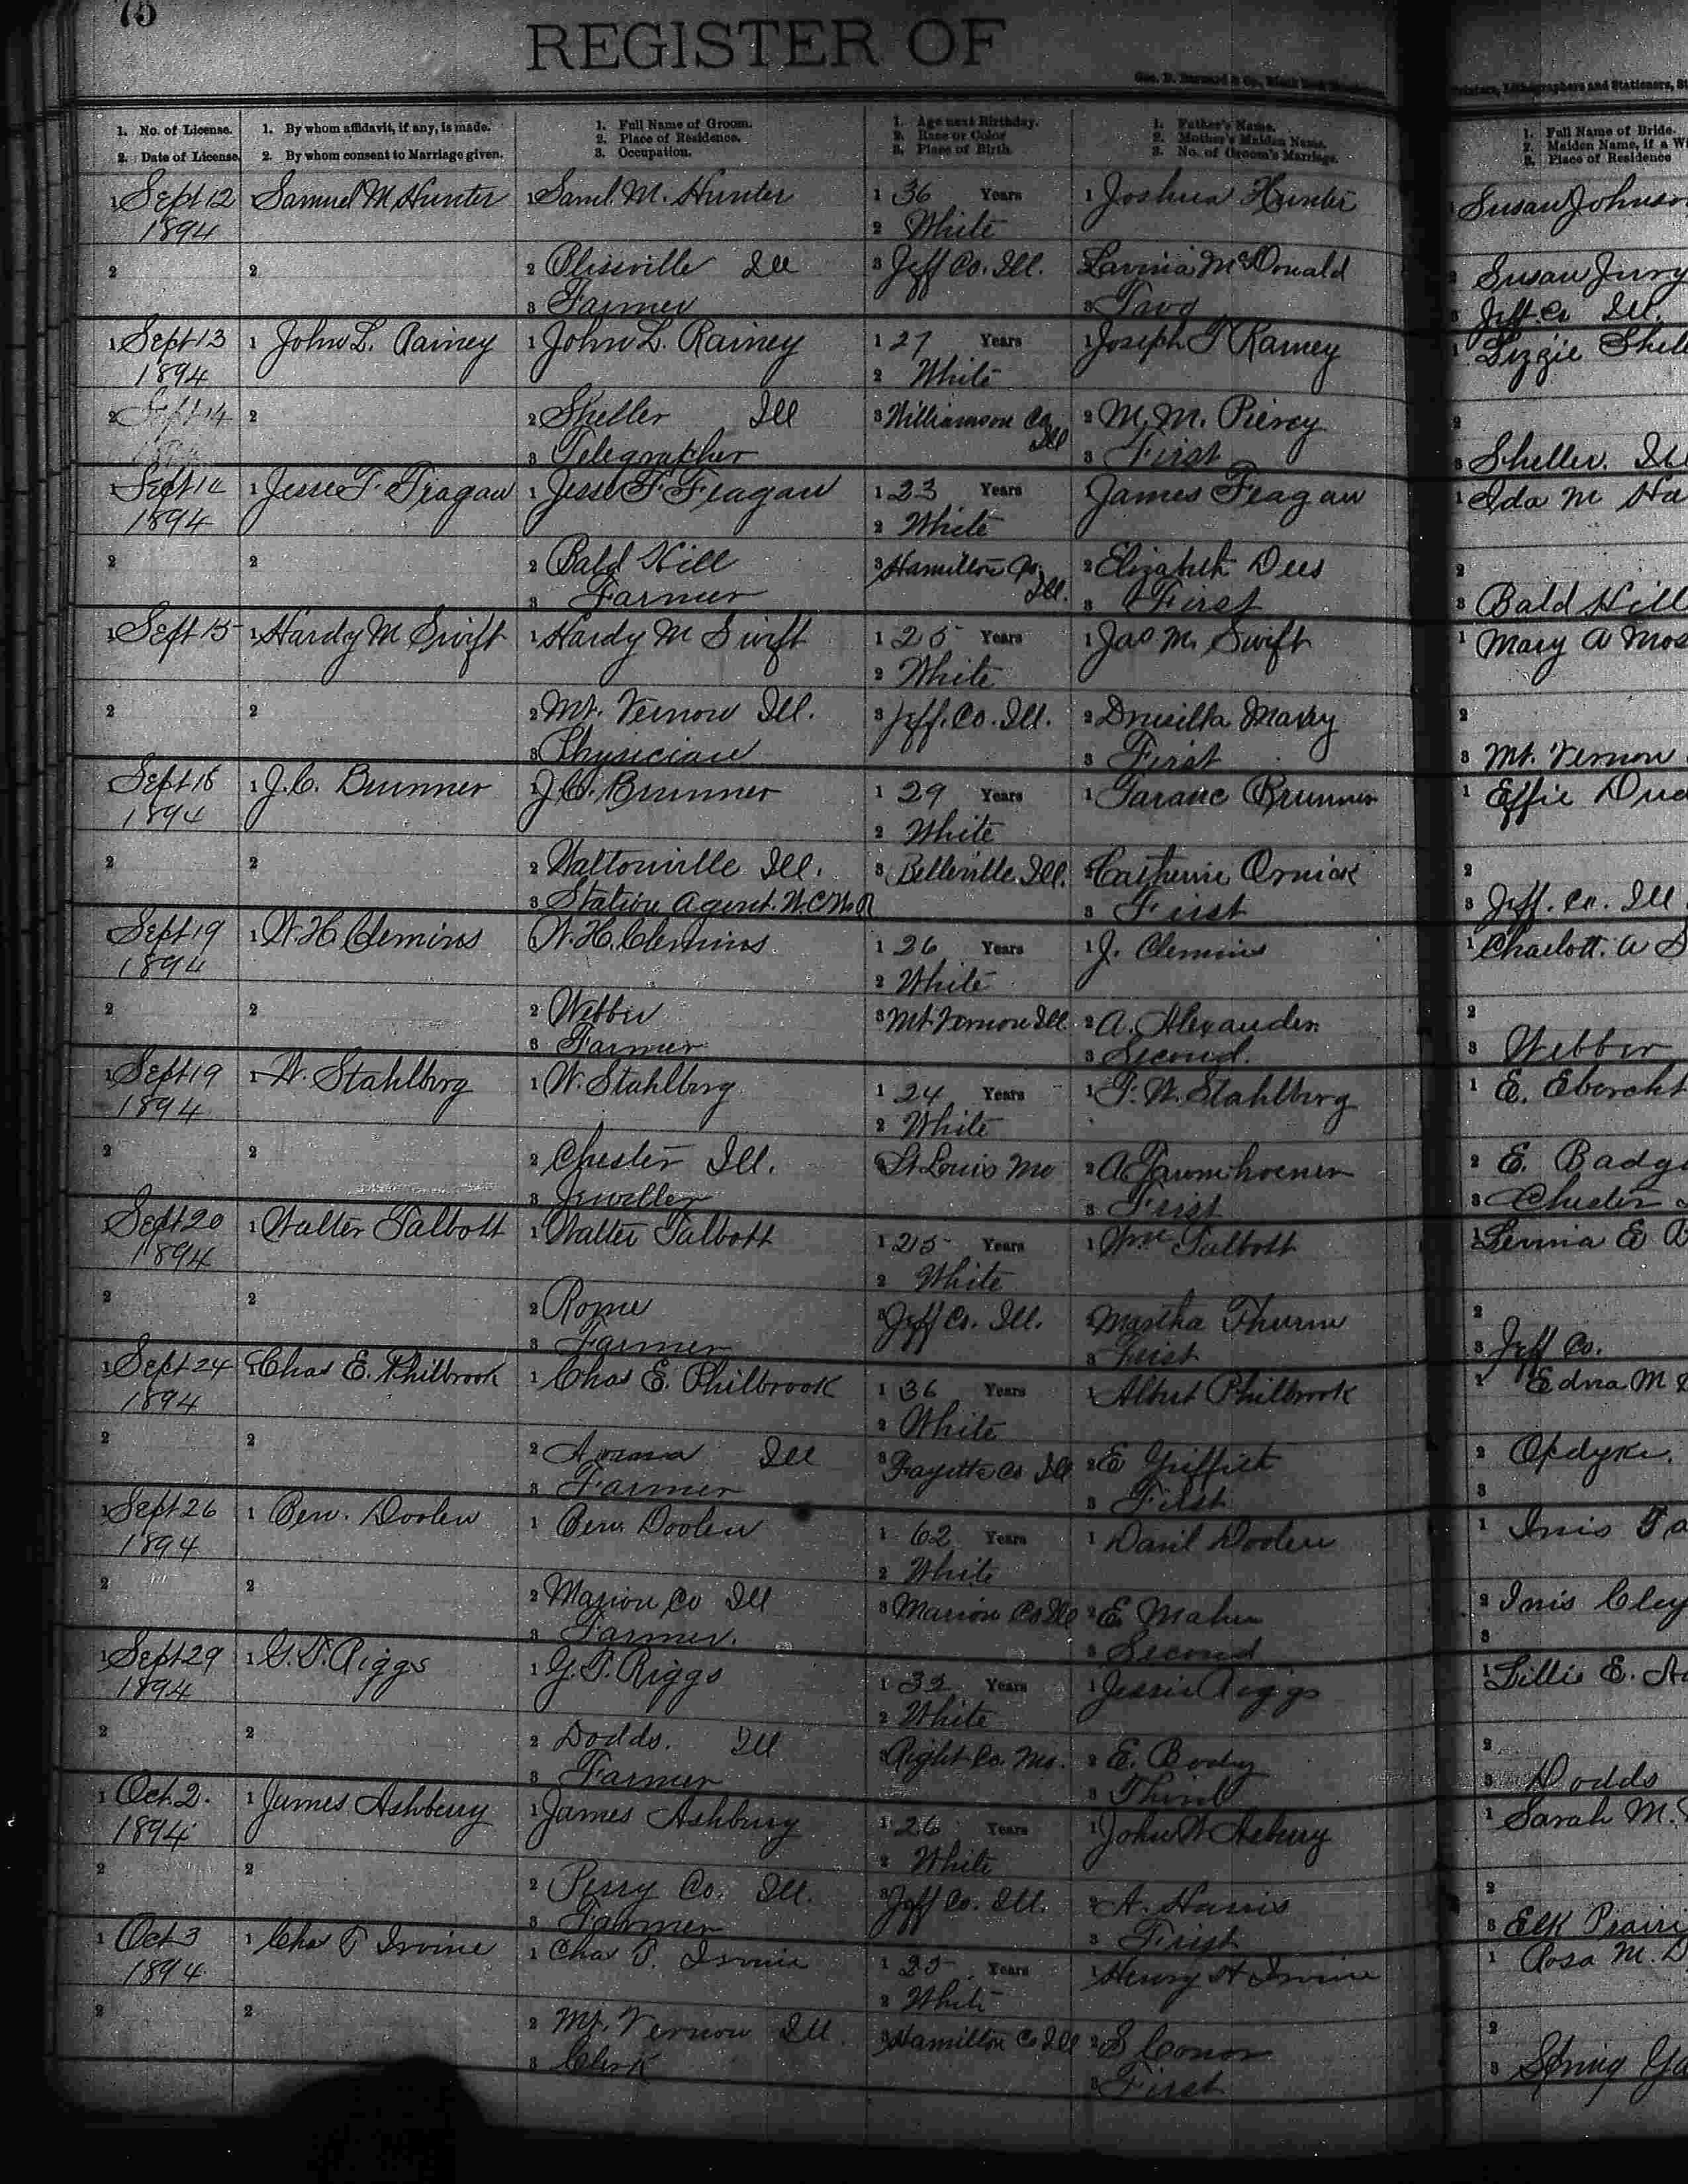 75
REGISTER OF
Geo. D. Barnard & Co.,
Printers, Lithographers and Stationers, St
1. No. of License.
2. Date of License.
1. By whom affidavit, if any, is made.
2. By whom consent to Marriage given.
1. Full Name of Groom.
2. Place of Residence.
3. Occupation.
1. Age next Birthday.
2. Race or Color
3. Place of Birth.
1. Father's Name.
2. Mother's Maiden Name.
3. No. of Groom's Marriage.
1. Full Name of Bride.
2. Maiden Name, if a Wi
3. Place of Residence
1 Sept 12 Samuel M Hunter 1 Saml. M. Hunter 1 36 Years 1 Joshua Hunter Susan Johnso
1894 2 White
2 2 2 Ill 3 Jeff Co. Ill. Lavinia McDonald 2 Susan Jury
3 Farmer 3 Two 3 Jeff. Co Ill.
1 Sept 13 1 John L. Rainey 1 John L. Rainey 1 27 Years 1 Joseph T Rainey 1 Lizzie Shel
1894 2 White
2 Sept 14 2 2 Sheller Ill 3 Williamson Co Ill 2 M. M. Piercy 2
3 Telegrapher 3 First 3 Sheller. Ill
1 Sept 14 1 Jesse F. Feagan 1 Jesse F Feagan 1 23 Years 1 James Feagan 1 Ida M Ha
1894 2 White
2 2 2 Bald Hill 3 Hamilton Co. Ill. 2 Elizabeth Dees 2
3 Farmer 3 First 3 Bald Hill
1 Sept 15 1 Hardy M Swift 1 Hardy M Swift 1 25 Years 1 Jas M. Swift 1 Mary A Mos
2 White
2 2 2 Mt. Vernon Ill. 3 Jeff. Co. Ill. 2 Drusilla 2
3 Physician 3 First 3 Mt. Vernon
Sept 18 1 J. C. Brunner 1 J. C. Brunner 1 29 Years 1 Brunner 1 Effie Dud
1894 2 White
2 2 2 Waltonville Ill. 3 Belleville Ill. 2 Catherine 2
3 Station Agent. 3 First 3 Jeff. Co. Ill
Sept 19 1 W. H. Clemins W. H. Clemins 1 26 Years 1 J. Clemins 1 Charlott. A S
1894 2 White
2 2 2 Webber 3 Mt. Vernon Ill. 2 A. Alexander 2
3 Farmer 3 Second. 3 Webber
1 Sept 19 1 W. Stahlberg 1 W. Stahlberg 1 24 Years 1 F. W. Stahlberg 1 E. Ebercht
1894 2 White
2 2 2 Chester Ill. 3 St. Louis Mo 2 2 E. Badg
3 Jeweller 3 First 3 Chester
Sept 20 1 Walter Talbott 1 Walter Talbott 1 25 Years 1 Wm Talbott 1
1894 2 White
2 2 2 Rome 3 Jeff Co. Ill. 2 Martha 2
3 Farmer 3 First 3 Jeff Co.
1 Sept 24 1 Chas E. Philbrook 1 Chas E. Philbrook 1 36 Years 1 Albert Philbrook 1 Edna M
1894 2 White
2 2 2 Ill 3 Fayette Co Ill 2 E Griffith 2 Opdyke.
3 Farmer 3 First 3
1 Sept 26 1 Ben. Doolen 1 Ben. Doolen 1 62 Years 1 Doolen 1 Inis
1894 2 White
2 2 2 Marion Co Ill 3 Marion Co Ill 2 E 2 Inis Cley
3 Farmer. 3 Second 3
1 Sept 29 1 G. T. Riggs 1 G. T. Riggs 1 32 Years 1 Jessie Riggs 1 Lillie E.
1894 2 White
2 2 2 Dodds. Ill 3 Right Co. Mo. 2 E. 2
3 Farmer 3 Third 3 Dodds
1 Oct. 2. 1 James Ashberry 1 James Ashbury 1 26 Years 1 John W Asbury 1 Sarah M.
1894 2 White
2 2 2 Perry Co. Ill. 3 Jeff Co. Ill. 2 A. Harris 2
3 Farmer 3 First 3 Elk Prairi
1 Oct 3 1 Chas T Irvine 1 Chas T. Irvine 1 25 Years 1 Henry H Irvine 1 Rosa M. D
1894 2 White
2 2 2 Mt. Vernon Ill. 3 Hamilton Co Ill 2 S Conor 2
3 Clerk 3 First 3 Spring Ga